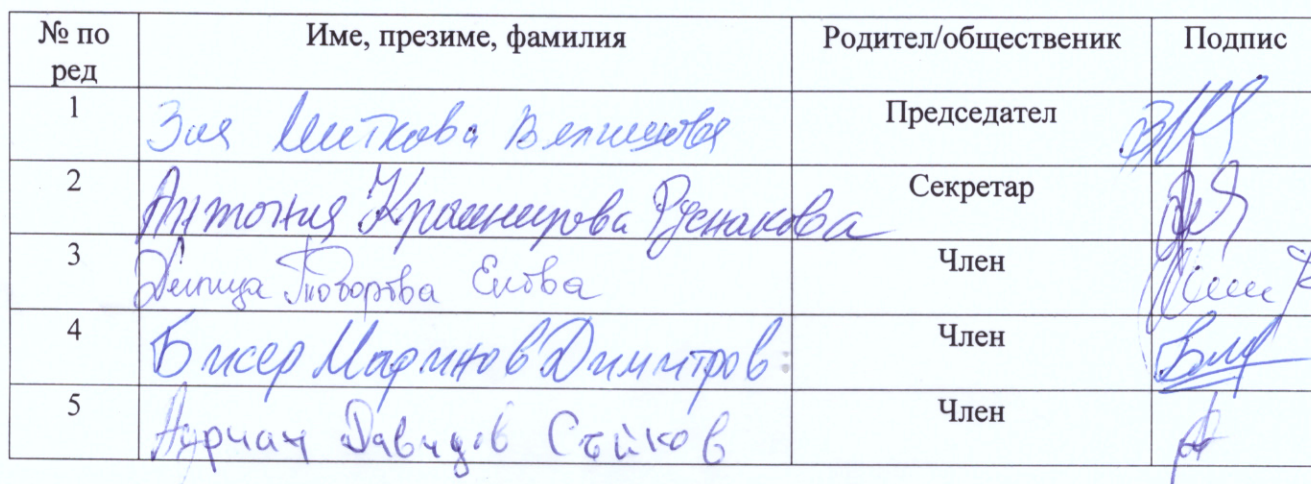 № по ред Име, презиме, фамилия Родител/общественик Подпис
1 Зоя Миткова Председател
2 Антония Крашнирова Руснакова Секретар
3 Тодорова Член
4 Бисер Маринов Димитров Член
5 Адриан Давидов Член